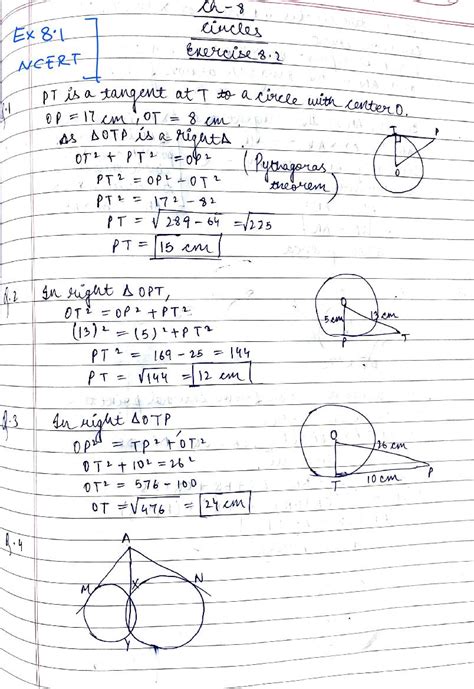 Ch-8
Circles
Exercise 8.2
Ex 8.1
NCERT
.1 PT is a tangent at T to a circle with center O.
OP = 17 cm, OT = 8 cm
As ΔOTP is a right Δ
OT² + PT² = OP² (Pythagoras theorem)
PT² = OP² - OT²
PT² = 17² - 82
PT = √289 - 64 = √225
PT = 15 cm
T P
O
Q.2 In right Δ OPT,
OT² = OP² + PT²
(13)² = (5)² + PT²
PT² = 169 - 25 = 144
PT = √144 = 12 cm
O
5 cm 13 cm
P T
Q.3 In right ΔOTP
OP² = TP² + OT²
OT² + 10² = 26²
OT² = 576 - 100
OT = √476 = 24 cm
O 26 cm
T 10 cm P
Q.4
A
M X N
Y